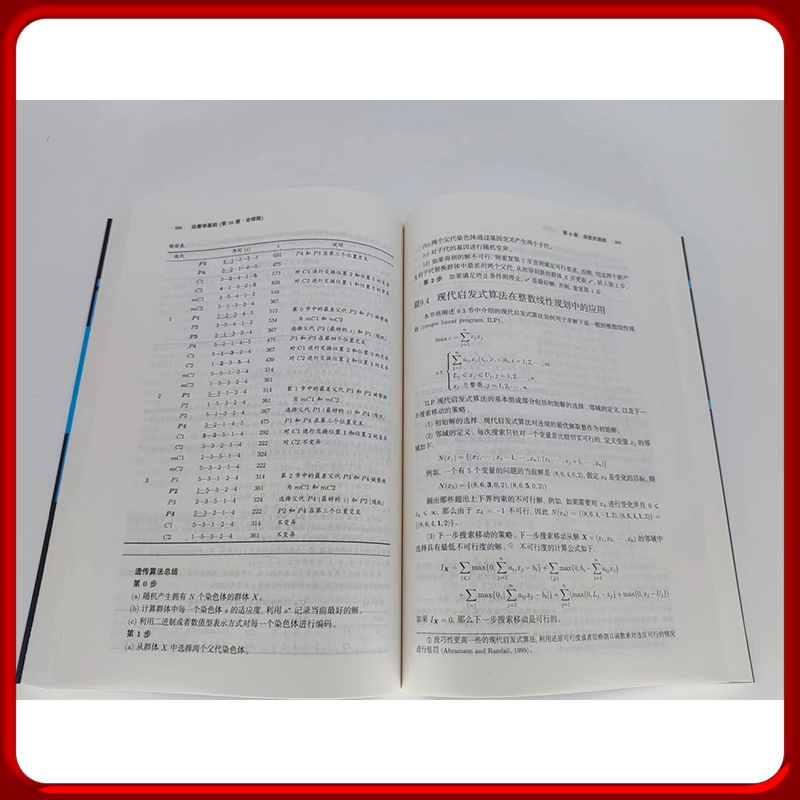 运筹学基础 (第10版·全球版)
续前表
迭代 序列 (s) z 说明
P3 5—1—3—2—4 P4 和 P3 在第三个位置交叉
P4 475
C1 573 对 C1 进行交换位置
C2 829 对 C2 进行交换位置
mC1 3—5—4—1—2
mC2 5—1—3—4—2 367
1 P1 512 第 0 步中的最差父代 P2 和 P3 被替换
P2 为 mC1 和 mC2
P3 选择父代 P3 (最好的 z) 和 P1 (随机)
P4 475 P1 和 P3 在第四个位置交叉
C1 5—1—3—2—4 367
C2 1—2—3—5—4 439
mC1 5—3—1—2—4 314
mC2 1—5—3—2—4
2 P1 5—3—1—2—4 314 第 1 步中的最差父代 P1 和 P2 被替换
P2 1—5—3—2—4 为 mC1 和 mC2
P3 5—1—3—2—4 367 选择父代 P3 (最好的 z) 和 P4 (随机)
P4 475 P1 和 P4 在第三个位置交叉
C1 3—2—5—1—4 292 对 C1 进行交换位置 1 和位置 2 的变异
C2 5—3—2—1—4 222 对 C2 不变异
mC1 2—3—5—1—4
mC2 5—3—2—1—4 222
3 P1 5—3—1—2—4 314 第 2 步中的最差父代 P3 和 P4 被替换
P2 1—5—3—2—4 361 为 mC1 和 mC2
P3 2—3—5—1—4 324 选择父代 P4 (最好的 z) 和 P2 (随机)
P4 5—3—2—1—4 222 P2 和 P4 在第三个位置交叉
C1 5—3—1—2—4 314 不变异
C2 1—5—3—2—4 361 不变异
遗传算法总结
第 0 步
(a) 随机产生拥有 N 个染色体的群体 X。
(b) 计算群体中每一个染色体 s 的适应度, 利用 s* 记录当前最好的解。
(c) 利用二进制或者数值型表示方式对每一个染色体进行编码。
第 1 步
(a) 从群体 X 中选择两个父代染色体。
第 9 章 启发式规划
(b) 两个父代染色体通过基因交叉产生两个子代。
(c) 对子代的基因进行随机变异。
(d) 如果得到的解不可行, 则重复第 1 步直到满足可行要求。否则, 用这两个新产
生的子代替换群体中最差的两个父代, 从而得到新的群体 X 并更新 s*, 转入第 2 步。
第 2 步 如果满足终止条件则停止, s* 是最好解; 否则, 重复第 1 步。
9.4 现代启发式算法在整数线性规划中的应用
本节将阐述 9.3 节中介绍的现代启发式算法如何用于求解下面一般的整数线性规
划 (integer linear program, ILP)。
max z = ∑ cjxj
s.t. ∑ aijxj (≤, ≥, =) bi, i = 1, 2, ···, m
Lj ≤ xj ≤ Uj, j = 1, 2, ···, n
xj 为整数, j = 1, 2, ···, n
ILP 现代启发式算法的基本组成部分包括初始解的选择、邻域的定义, 以及下一
步搜索移动的策略。
(1) 初始解的选择。现代启发式算法对连续的最优解取整作为初始解。
(2) 邻域的定义。每次搜索只针对一个变量是比较切实可行的, 定义变量 xj 的邻
域如下:
N(xj) = {(x1, ···, xj − 1, ···, xn), (x1, ···, xj + 1, ···, xn)}
例如, 一个有 5 个变量的问题的当前解是 (8, 6, 4, 0, 2), 假定 x3 是变化的目标, 则
N(x3) = {(8, 6, 3, 0, 2), (8, 6, 5, 0, 2)}
剔出那些超出上下界约束的不可行解。例如, 如果需要对 x4 进行变化并且 0 ≤
x4 ≤ ∞, 那么由于 x4 = −1 不可行, 因此 N(x4) = {(8, 6, 4, −1, 2), (8, 6, 4, 1, 2)} =
{(8, 6, 4, 1, 2)}。
(3) 下一步搜索移动的策略。下一步搜索移动从解 X = (x1, x2, ···, xn) 的邻域中
选择具有最低不可行度的解。① 不可行度的计算公式如下:
IX = ∑(≤) max{0, ∑ aijxj − bi} + ∑(≥) max{0, bi − ∑ aijxj}
+ ∑(=) max{0, |∑ aijxj − bi|} + ∑ max{0, Lj − xj} + max{0, xj − Uj}}
如果 IX = 0, 那么下一步搜索移动是可行的。
① 技巧性更高一些的现代启发式算法, 利用还原可行度或者拉格朗日函数来对违反可行的情况
进行惩罚 (Abramson and Randall, 1999)。